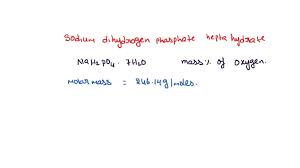 Sodium dihydrogen phosphate hepta hydrate
NaH2PO4. 7H2O mass% of oxygen.
molar mass = 246.14g/moles.